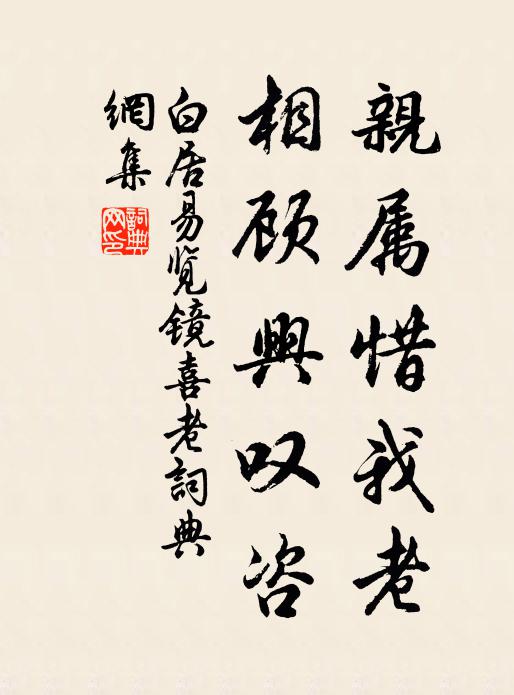 親属惜我老
相顾興叹咨
白居易览鏡喜老詞典
網集
詞典
网印